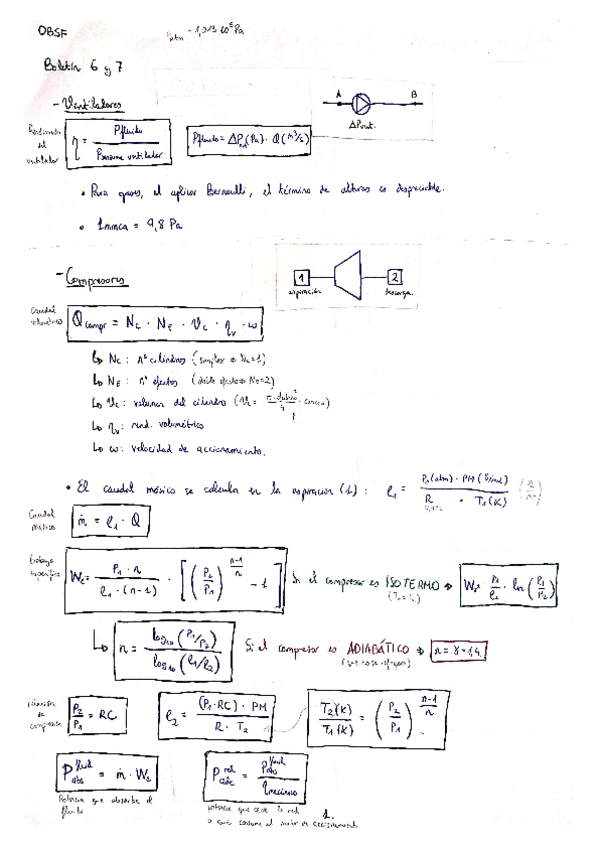 OBSF
Patm = 1,013·10⁵ Pa
Boletín 6 y 7
- Ventiladores
A B
ΔPvent.
Rendimiento del ventilador
η = Pfluido / Pconsume ventilador
Pfluido = ΔPvent (Pa) · Q (m³/s)
• Para gases, al aplicar Bernoulli, el término de alturas es despreciable.
• 1mmca = 9,8 Pa
- Compresores
1 2
aspiración descarga
Caudal volumétrico
Qcompr = Nc · NE · Vc · ηv · ω
↳ Nc: nº cilindros (simplex ⇒ Nc=1)
↳ NE: nº efectos (doble efecto ⇒ NE=2)
↳ Vc: volumen del cilindro (Vc = π·dcilindro² / 4 · carrera)
↳ ηv: rend. volumétrico
↳ ω: velocidad de accionamiento.
• El caudal másico se calcula en la aspiración (1): ρ1 = P1(atm) · PM(g/mol) / R · T1(K)
Caudal másico
ṁ = ρ1 · Q
trabajo específico
Wc = P1 · n / ρ1 · (n-1) · [(P2/P1)^(n-1/n) - 1] Si el compresor es ISOTERMO ⇒ Wc = P1/ρ1 · ln(P1/P2)
(T1=T2)
↳ n = log10(P1/P2) / log10(ρ1/ρ2) Si el compresor es ADIABÁTICO ⇒ n = γ = 1,4
(que no se refrigera)
relación de compresión
P2/P1 = RC
ρ2 = (P1·RC) · PM / R · T2
T2(K)/T1(K) = (P2/P1)^(n-1/n)
P abs fluido = ṁ · Wc
P red cede = P abs fluido / η mecánico
Potencia que absorbe el fluido
potencia que cede la red
o que consume el motor de accionamiento
1.